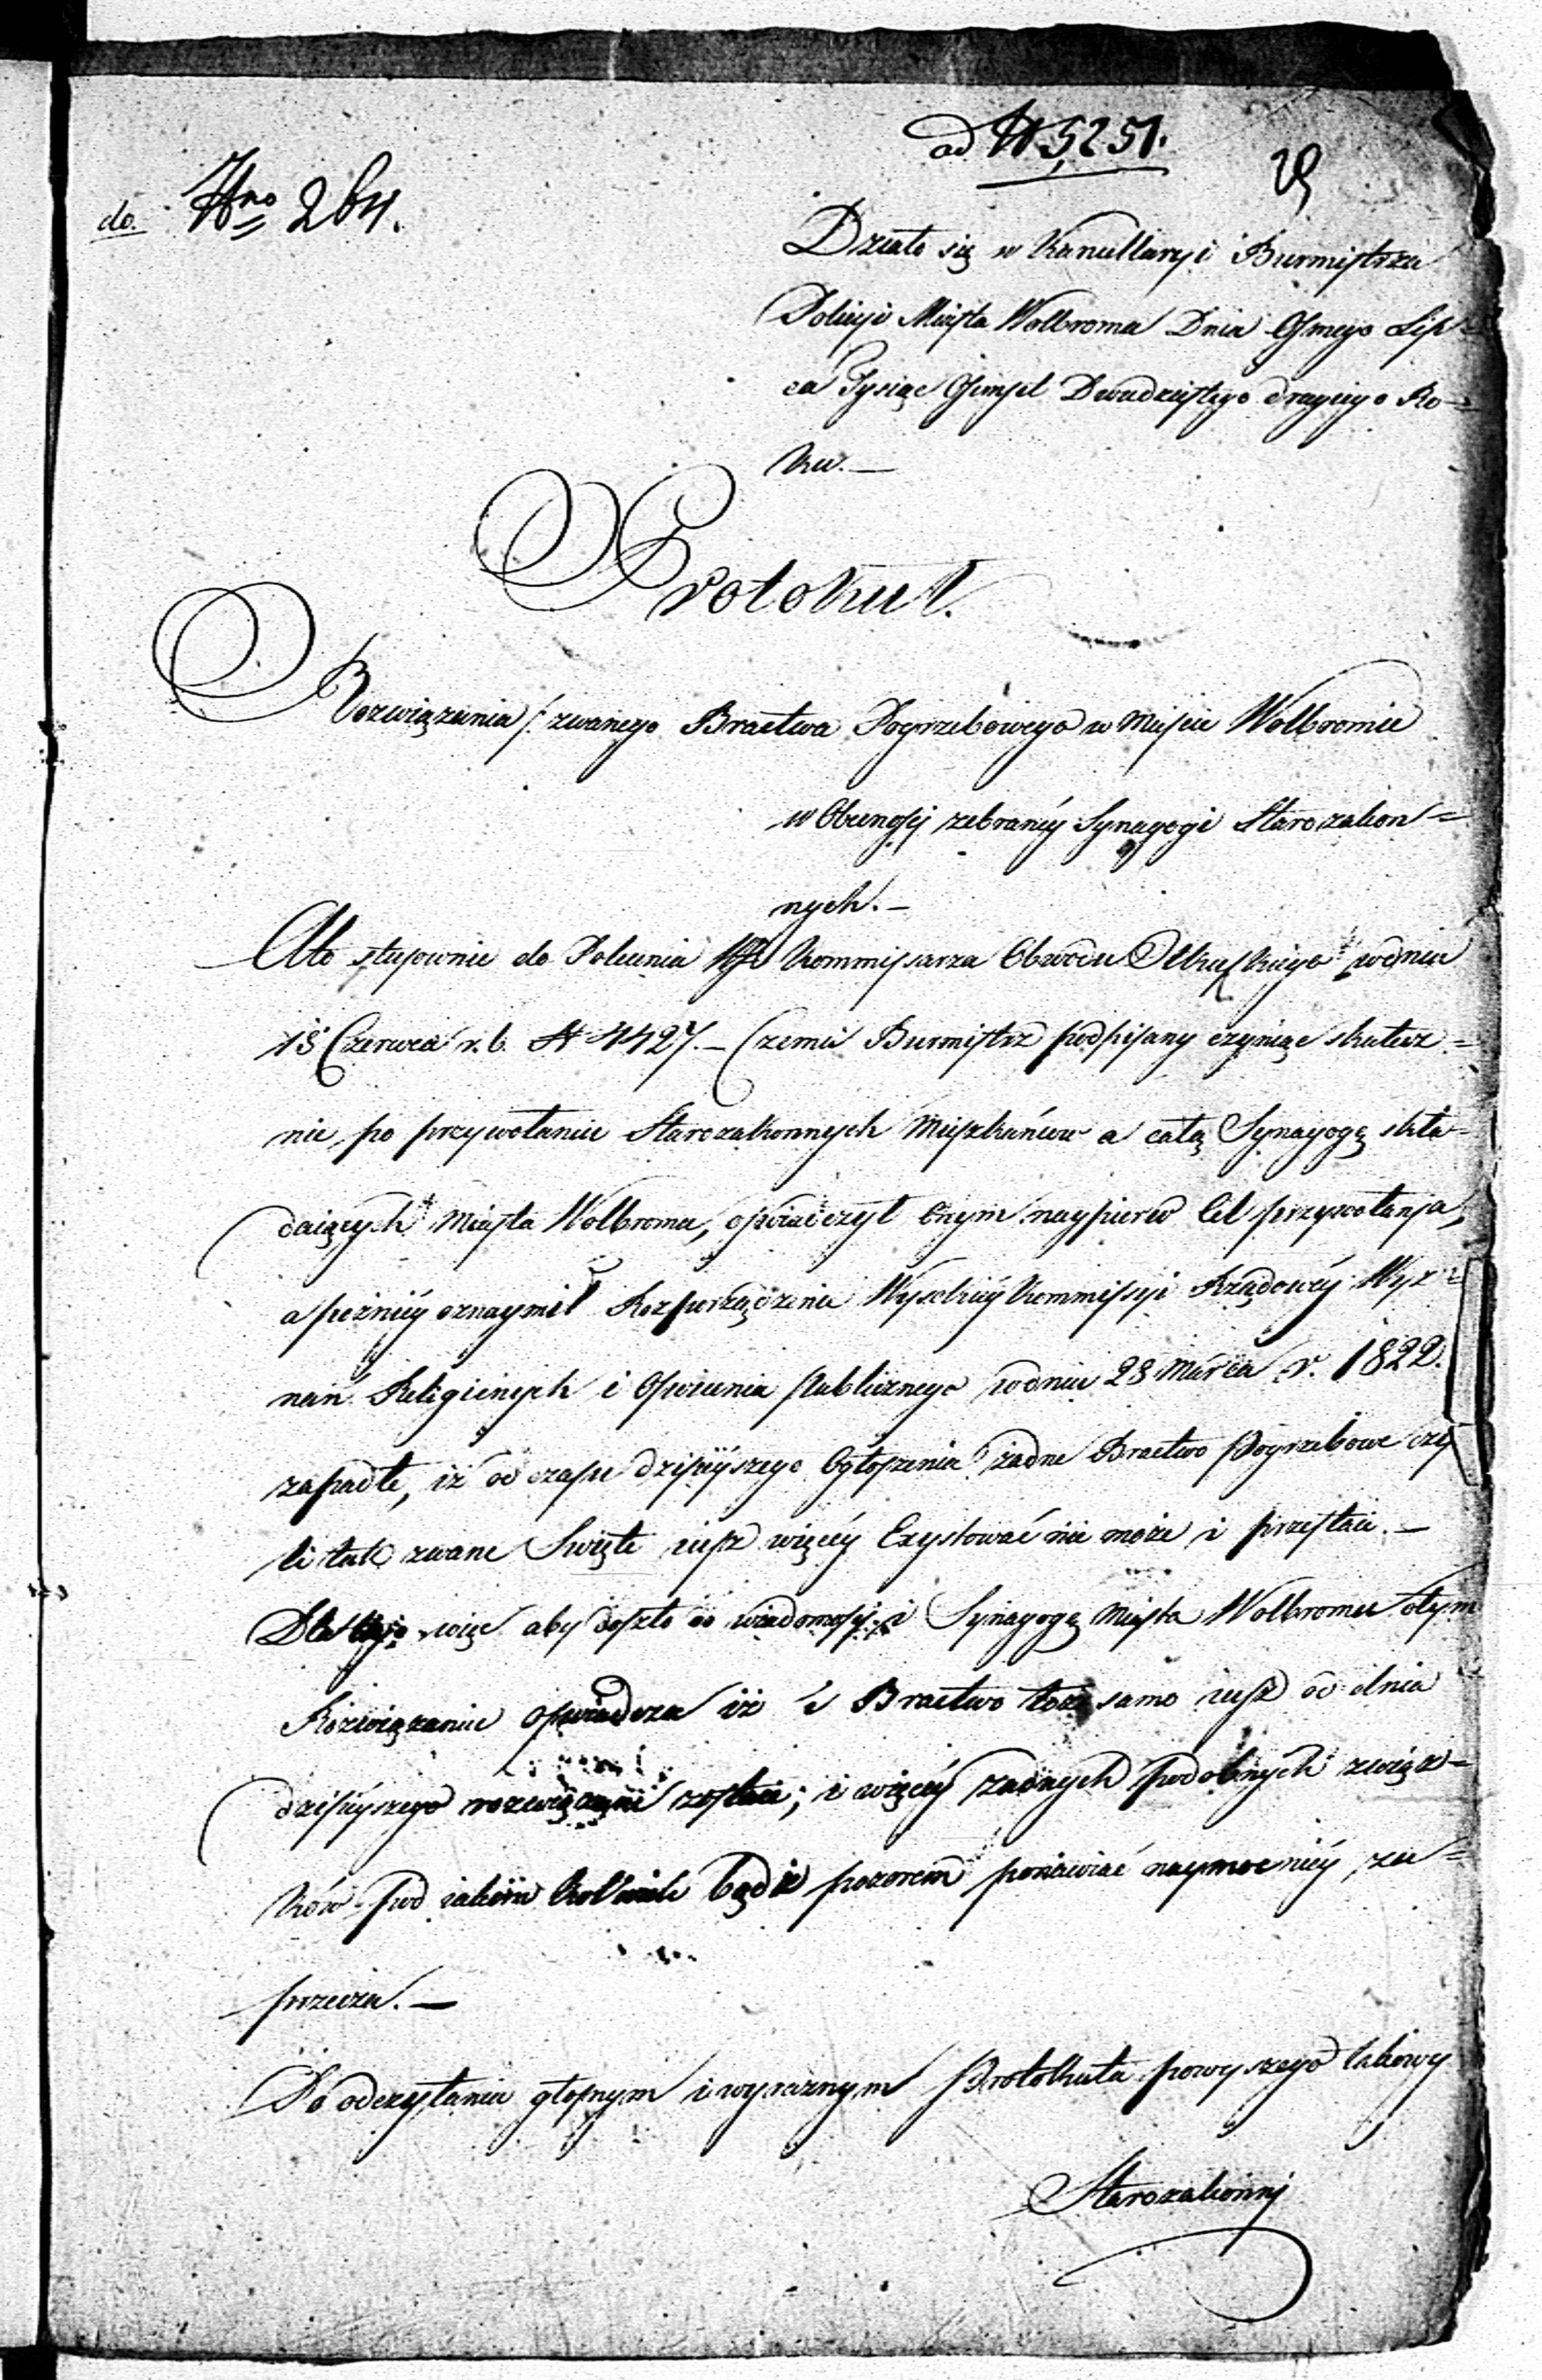 ad N 5251.
29
do. Nro 264.
Działo się w Kancellaryi Burmistrza
Policyi Miasta Wolbroma Dnia Osmego Lip=
ca Tysiąc Osmset Dwudziestego drugiego Ro=
ku. —
Protokuł.
Rozwiązania /: zwanego Bractwa Pogrzebowego w Mieście Wolbromie
w Obecnosci zebranéy Synagogi Starozakon=
nych. —
A to stosownie do Polecenia Kommissarza Obwodu Olkuskiego z odnia
18 Czerwca r. b. N 4427. — Czemu Burmistrz podpisany czyniąc skutecz=
nie, po przywołaniu Starozakonnych Mieszkańców a całą Synagogę skła=
daiących Miasta Wolbroma, oświadczył Onym naypierw Cel przywołania,
a pożniéy oznaymił Rozporządzenie Wysokiéy Kommissyi Rządowéy Wyz=
nań Religiinych i Oświecenia Publicznego z odnia 28 Marca r. 1822.
zapadłe, iż od czasu dzisiéyszego Ogłoszenia żadne Bractwo Pogrzebowe czy
li tak zwane Swięte iusz więcéy Exystować nie może i przestaie. —
Dla tego więc aby doszło do wiadomości i Synagogę Miasta Wolbroma o tym
Rozwiązaniu oświadcza iż i Bractwo toż samo iusz od dnia
dzisiéyszego rozwiązani zostaie; i więcéy żadnych podobnych związ=
ków pod iakim kolwiek bądź pozorem ponawiać naymocniéy za=
przecza. —
Po odczytaniu głosnym i wyraznym Protokuła powyszego takowy
Starozakonni